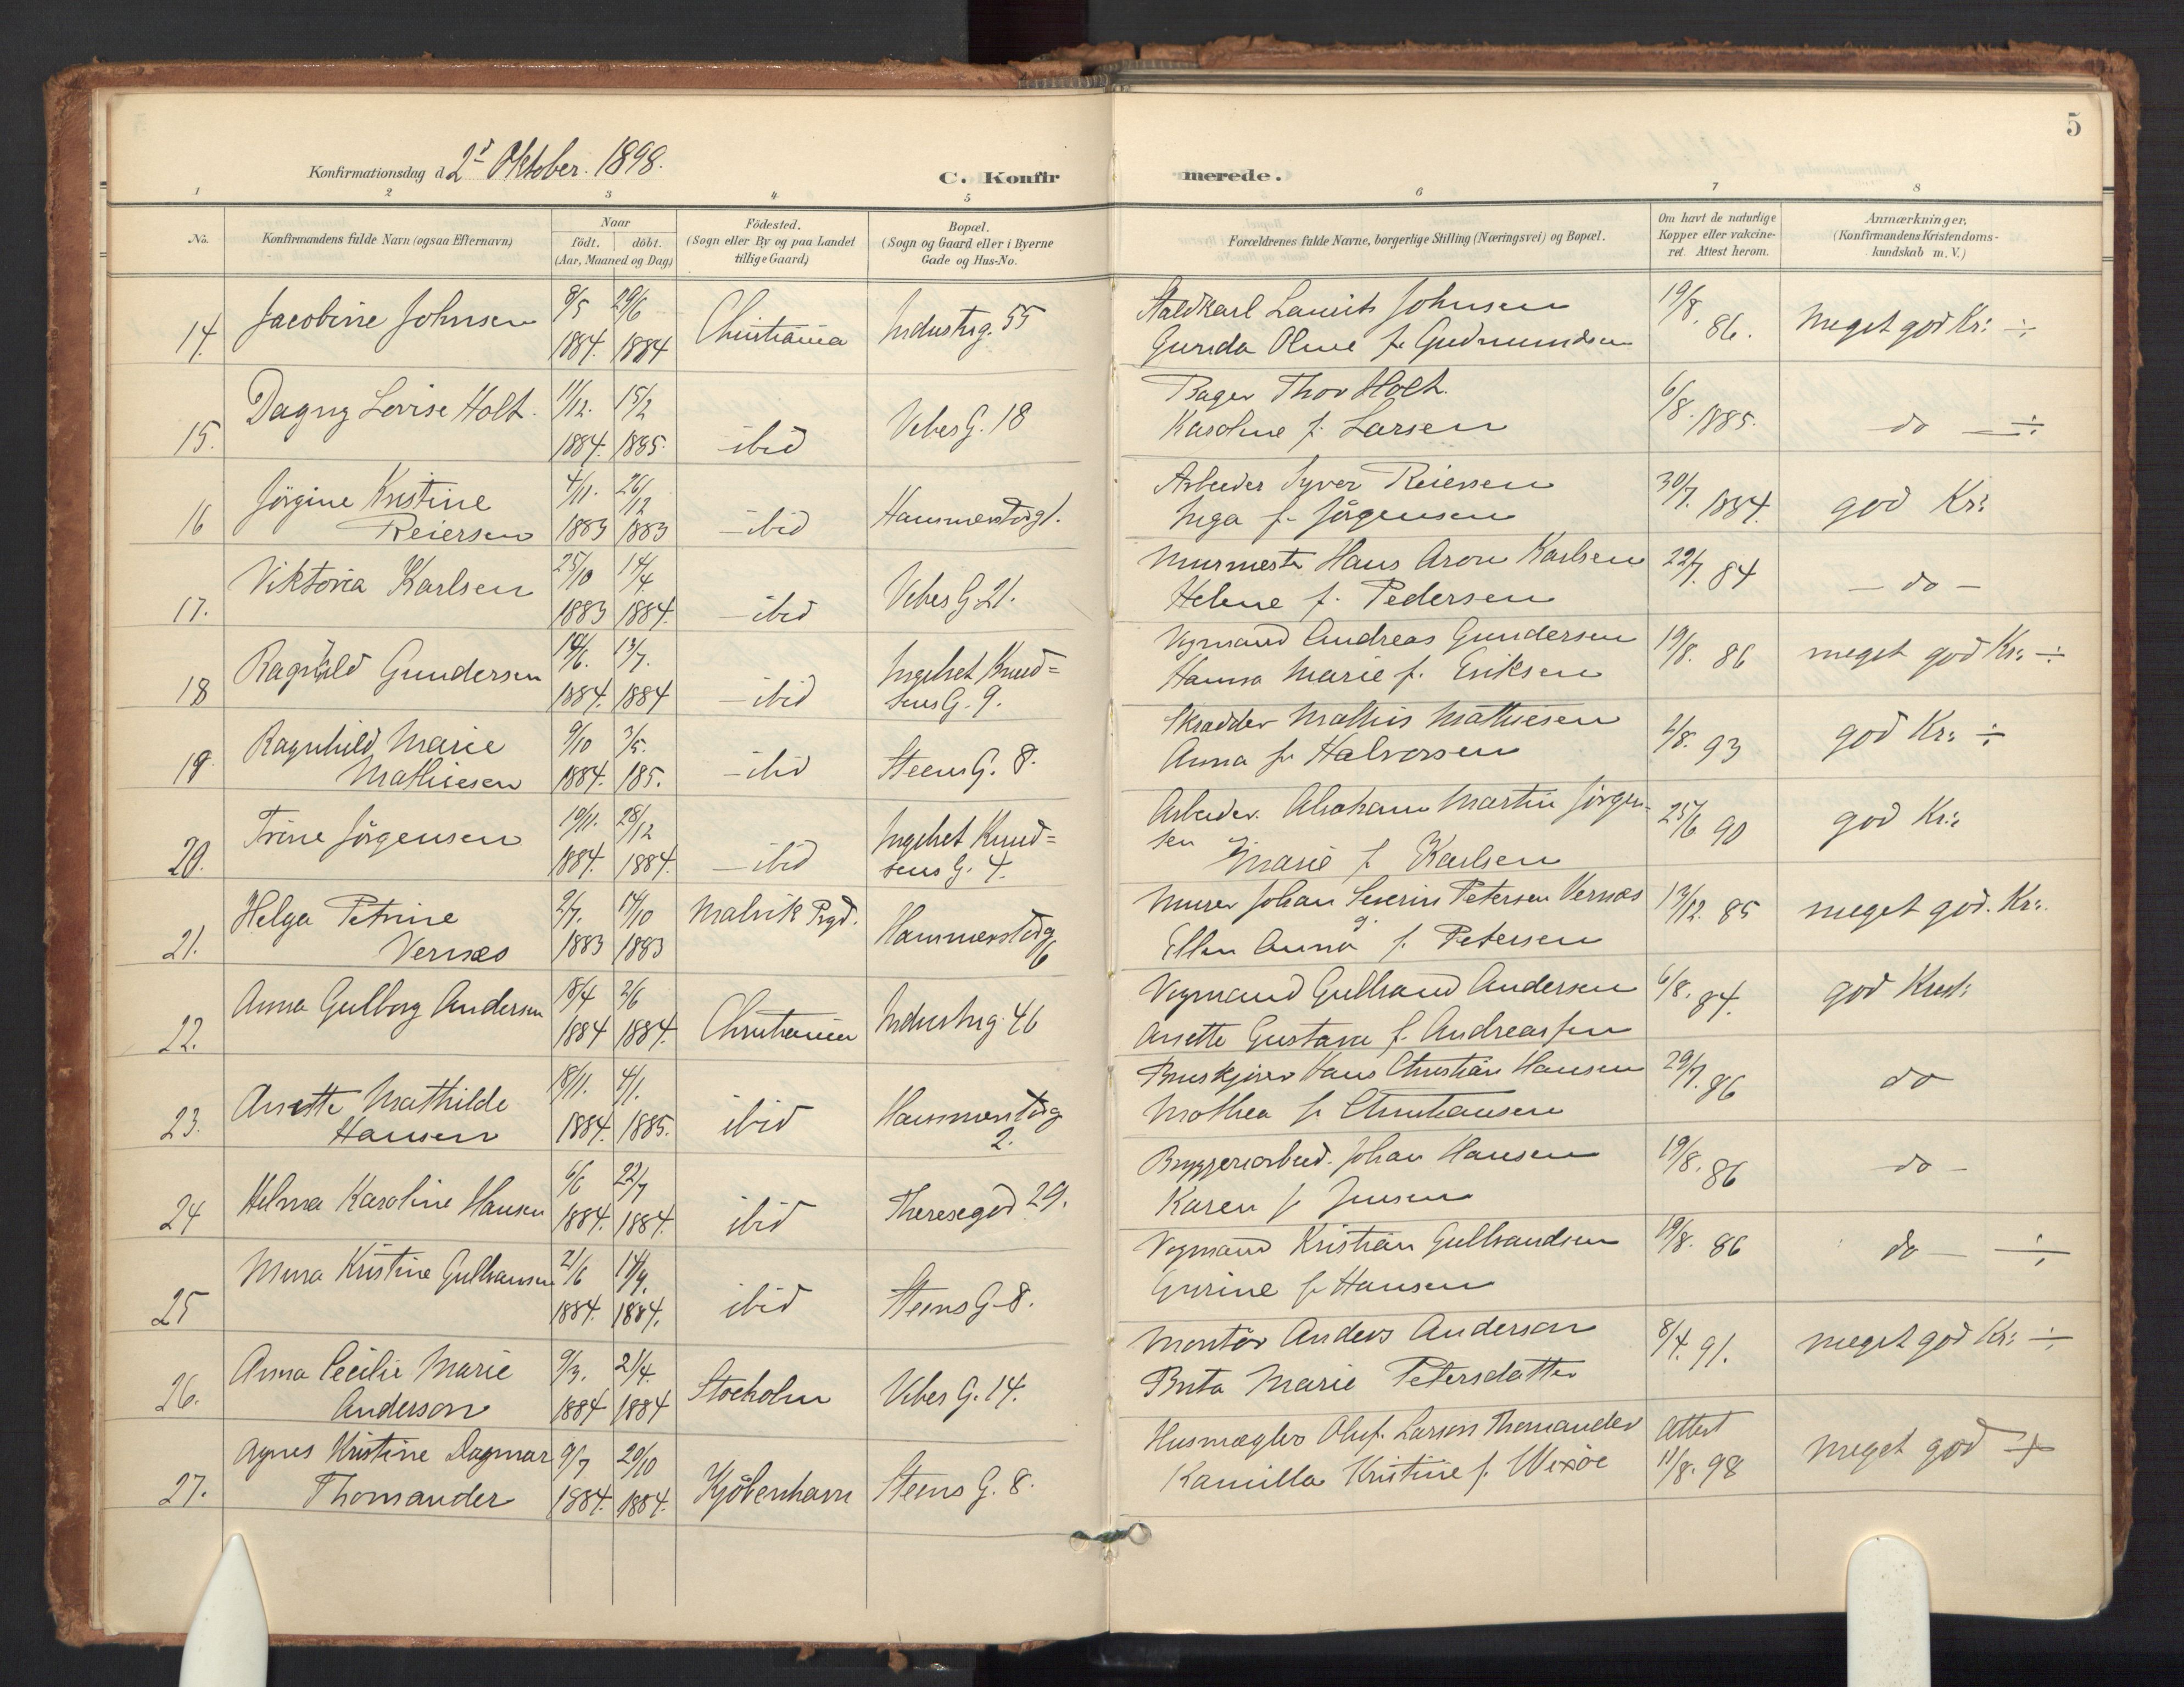 5
Konfirmationsdag d. 2d Oktober. 1898.
C. Konfirmerede.
1 2 3 4 5 6 7 8
No.
Konfirmandens fulde Navn (ogsaa Efternavn)
Naar
födt. döbt.
(Aar, Maaned og Dag)
Födested.
(Sogn eller By og paa Landet
tillige Gaard)
Bopæl.
(Sogn og Gaard eller i Byerne
Gade og Hus-No.
Forældrenes fulde Navne, borgerlige Stilling (Næringsvei) og Bopæl.
Om havt de naturlige
Kopper eller vakcine-
ret. Attest herom.
Anmærkninger,
(Konfirmandens Kristendoms-
kundskab m. V.)
14. Jacobine Johnsen 8/5 1884. 29/6 1884 Christiania Industrig. 55
Staldkarl Laurits Johnsen 19/8. 86. Meget god Kr: ÷
Gunda Oline f. Gudmundsen
15. Dagny Lovise Holt. 11/12. 1884. 15/2 1885. – ibid Vibes G. 18
Bager Thor Holt. 6/8. 1885. – do – ÷
Karoline f. Larsen
16 Jörgine Kristine
Reiersen 4/11. 1883 26/12 1883 – ibid Hammerstadg 1.
Arbeider Syver Reiersen 30/7. 1884. god Kr:
Inga f. Jörgensen
17. Viktoria Karlsen 25/10 1883 14/4 1884. – ibid Vibes G. 21.
Murmester Hans Aron Karlsen 22/7. 84 – do –
Helene f. Pedersen
18 Ragnhild Gundersen 14/6. 1884. 13/7. 1884 – ibid Ingebret Knud=
sens G. 9.
Vogmand Andreas Gundersen 19/8. 86 meget god Kr: ÷
Hanna Marie f. Eriksen
19. Ragnhild Marie
Mathiesen 9/10 1884. 3/5. 185. – ibid Steens G. 8.
Skrædder Mathis Mathiesen 2/8. 93 god Kr: ÷
Anna f. Halvorsen
20. Trine Jörgensen 19/11. 1884. 28/12 1884. – ibid Ingebret Knud=
sens G. 4.
Arbeider. Abraham Martin Jörgen-
sen 25/6 90 god Kr:
Marie f. Karlsen
21. Helga Petrine
Vernæs 2/7. 1883 14/10 1883 Malvik Prgd. Hammerstadg
6
Murer Johan Severin Petersen Vernæs 13/12. 85 meget god. Kr:
g.
Ellen Anna f. Petersen
22. Anna Gulborg Andersen 18/4 1884 2/6 1884. Christiania Industrig. 46
Vogmand Gulbrand Andersen 6/8. 84. god Krist:
Anette Gustava f. Andreassen
23. Anette Mathilde
Hansen 18/11. 1884. 4/1. 1885. ibid Hammerstadg
2.
Buntmager Hans Christian Hansen 29/7. 86 do
Mathea f. Christiansen
24 Helma Karoline Hansen 6/6 1884. 22/7 1884. ibid Theresegad 29.
Bryggeriarbeid. Johan Hansen 19/8. 86 – do –
Karen f. Jensen
25 Mina Kristine Gulbransen 21/6 1884. 14/9. 1884. ibid Steens G. 8.
Vogmand Kristian Gulbrandsen 19/8. 86 do – ÷
Gurine f. Hansen
26. Anna Cecilie Marie
Anderson 9/3. 1884 21/4. 1884 Stockholm Vibes G. 14.
Montör Anders Anderson 8/4. 91. meget god Kr: ÷
Brita Marie Petersdatter
27. Agnes Kristine Dagmar
Thomander 9/7 1884. 20/10 1884. Kjöbenhavn Steens G. 8.
Husmægler Oluf. Larson Thomander Attest 11/8. 98 meget god ÷
Kamilla Kristine f. Wexöe